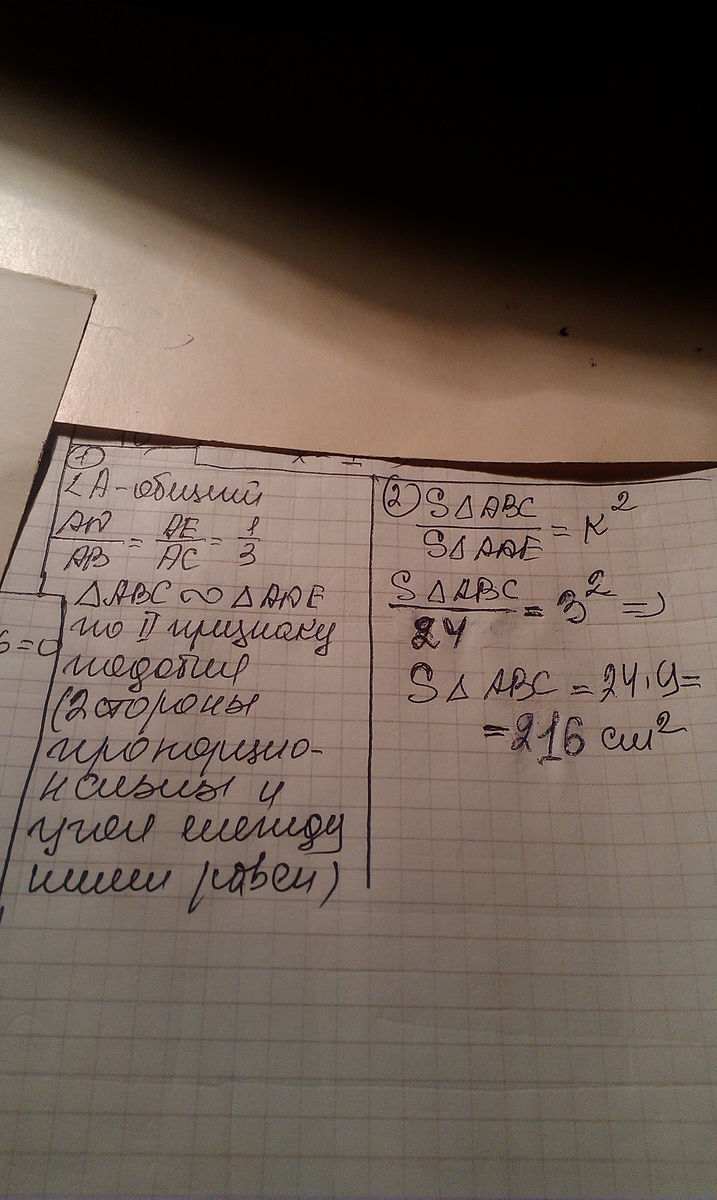 ①
∠A-общий
AD/AB = AE/AC = 1/3
△ABC ∾ △ADE
по II признаку
подобия
(2 стороны
пропорцио-
нальны и
угол между
ними равен)
6=0
② S△ABC/S△ADE = K²
S△ABC/24 = 3² =>
S△ABC = 24·9=
=216 см²